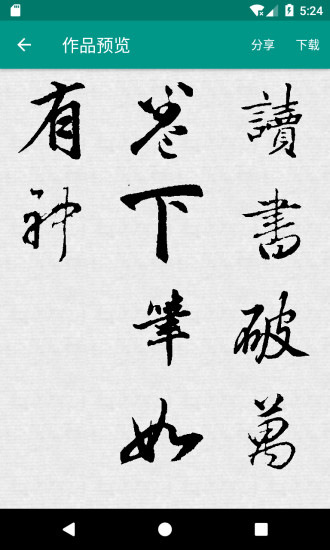 5:24
作品预览
分享
下载
讀書破萬
卷下筆如
有神